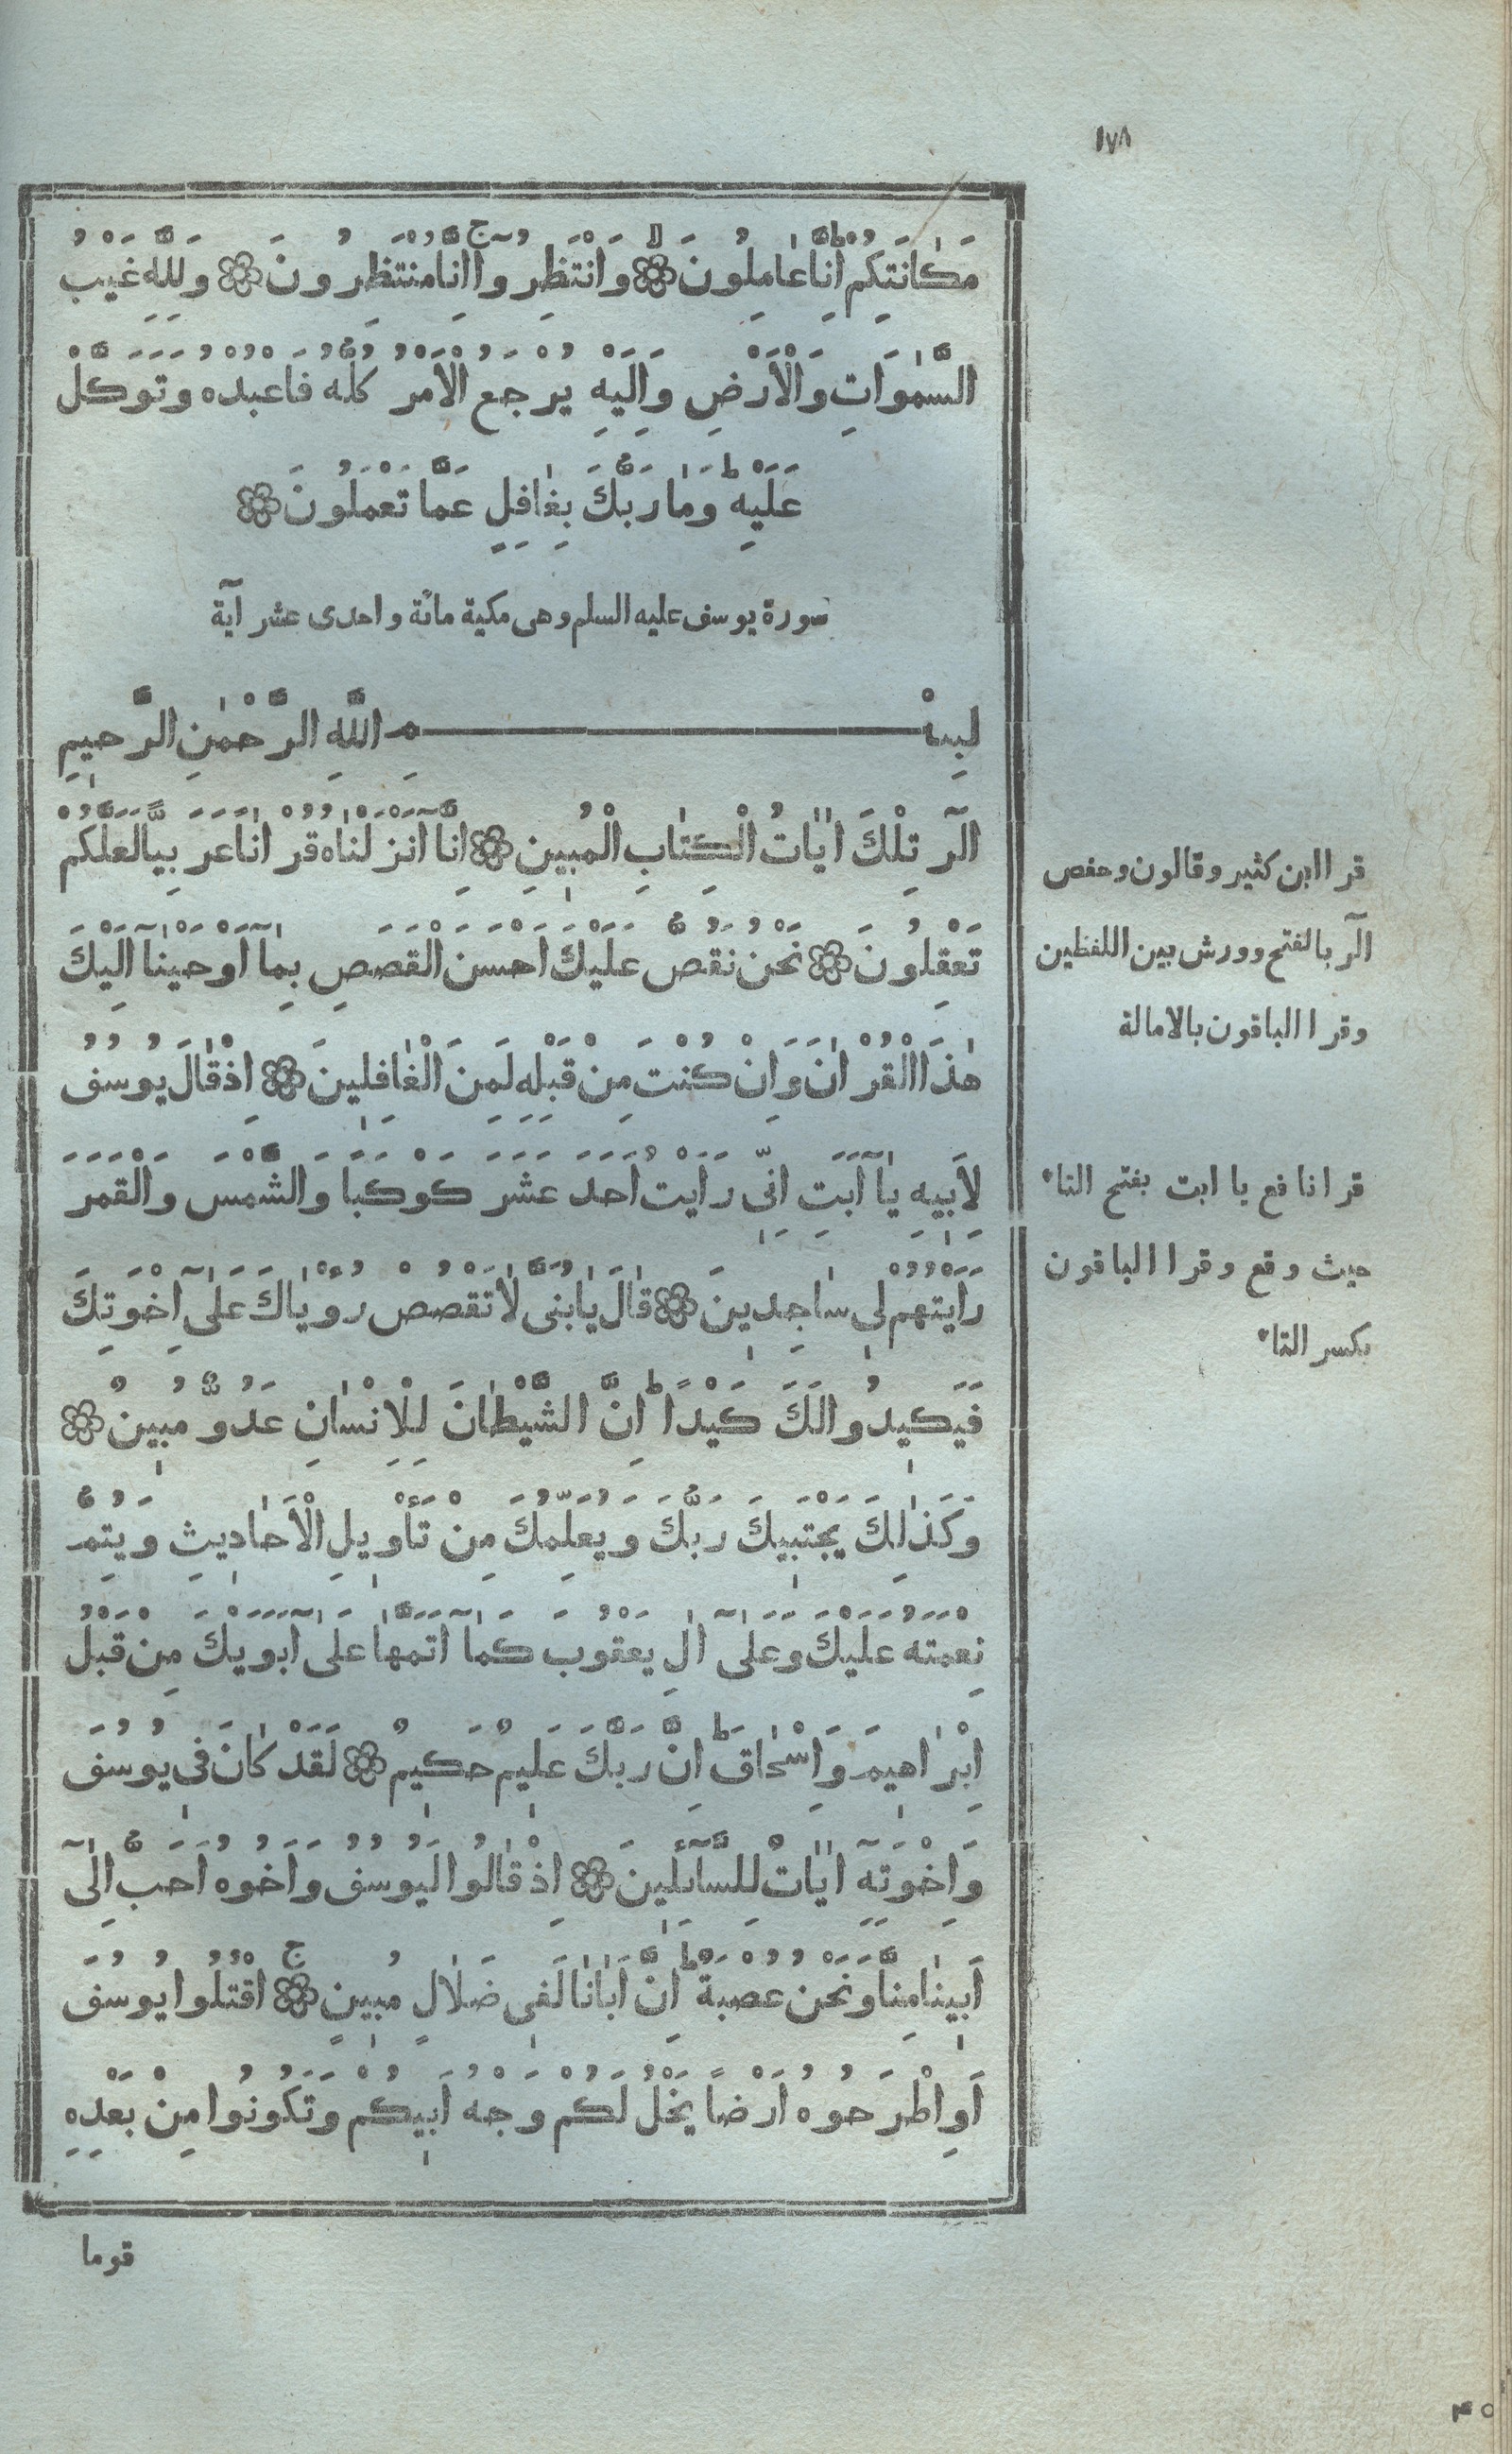 ١٧٨
مَكَانَتِكُمْ اِنَّا عَامِلُونَ وَانْتَظِرُوآ اِنَّا مُنْتَظِرُونَ وَلِلّٰهِ غَيْبُ
السَّمٰوَاتِ وَالْاَرْضِ وَاِلَيْهِ يُرْجَعُ الْاَمْرُ كُلُّهُ فَاعْبُدْهُ وَتَوَكَّلْ
عَلَيْهِ ط وَمَا رَبُّكَ بِغَافِلٍ عَمَّا تَعْمَلُونَ
سورة يوسف عليه السلم وهى مكية مائة واحدى عشر آية
بِسْمِ اللّٰهِ الرَّحْمٰنِ الرَّحِيمِ
الٓر تِلْكَ اٰيَاتُ الْكِتَابِ الْمُبِينِ اِنَّآ اَنْزَلْنَاهُ قُرْاٰنًا عَرَبِيًّا لَعَلَّكُمْ
تَعْقِلُونَ نَحْنُ نَقُصُّ عَلَيْكَ اَحْسَنَ الْقَصَصِ بِمَآ اَوْحَيْنَآ اِلَيْكَ
هٰذَا الْقُرْاٰنَ وَاِنْ كُنْتَ مِنْ قَبْلِهِ لَمِنَ الْغَافِلِينَ اِذْ قَالَ يُوسُفُ
لِاَبِيهِ يَآ اَبَتِ اِنِّى رَاَيْتُ اَحَدَ عَشَرَ كَوْكَبًا وَالشَّمْسَ وَالْقَمَرَ
رَاَيْتُهُمْ لِى سَاجِدِينَ قَالَ يَا بُنَىَّ لَا تَقْصُصْ رُؤْيَاكَ عَلٰٓى اِخْوَتِكَ
فَيَكِيدُوا لَكَ كَيْدًا ط اِنَّ الشَّيْطَانَ لِلْاِنْسَانِ عَدُوٌّ مُبِينٌ
وَكَذٰلِكَ يَجْتَبِيكَ رَبُّكَ وَيُعَلِّمُكَ مِنْ تَأْوِيلِ الْاَحَادِيثِ وَيُتِمُّ
نِعْمَتَهُ عَلَيْكَ وَعَلٰٓى اٰلِ يَعْقُوبَ كَمَآ اَتَمَّهَا عَلٰٓى اَبَوَيْكَ مِنْ قَبْلُ
اِبْرَاهِيمَ وَاِسْحَاقَ ط اِنَّ رَبَّكَ عَلِيمٌ حَكِيمٌ لَقَدْ كَانَ فِى يُوسُفَ
وَاِخْوَتِهِٓ اٰيَاتٌ لِلسَّآئِلِينَ اِذْ قَالُوا لَيُوسُفُ وَاَخُوهُ اَحَبُّ اِلٰٓى
اَبِينَا مِنَّا وَنَحْنُ عُصْبَةٌ ط اِنَّ اَبَانَا لَفِى ضَلَالٍ مُبِينٍ ج اقْتُلُوا يُوسُفَ
اَوِ اطْرَحُوهُ اَرْضًا يَخْلُ لَكُمْ وَجْهُ اَبِيكُمْ وَتَكُونُوا مِنْ بَعْدِهِ
قوما
قرا ابن كثير وقالون وحفص
الٓر بالفتح وورش بين اللفظين
وقرا الباقون بالامالة
قرا نافع يا ابت بفتح التاء
حيث وقع وقرا الباقون
بكسر التاء